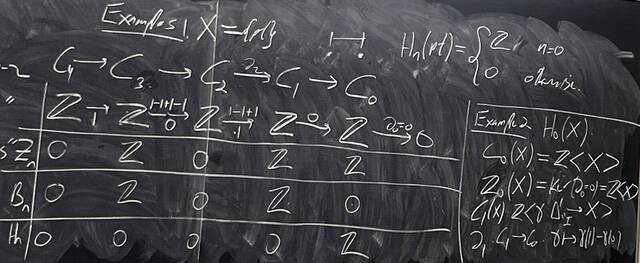 Examples 1. X = {pt}
H_n(pt) = { Z n=0
0 otherwise.
C_4 → C_3 → C_2 →∂_2 C_1 → C_0
Z →1 Z →1-1+1-1 0 Z →1-1+1 1 Z →0 Z →∂_0=0 0
Z_n 0 Z 0 Z Z
B_n 0 Z 0 Z 0
H_n 0 0 0 0 Z
Example 2 H_0(X)
C_0(X) = Z<X>
Z_0(X) = Ker(∂_0=0) = Z<X>
C_1(X) Z<γ Δ^1 → X>
I
∂_1 C_1→C_0 γ ↦ γ(1)-γ(0)